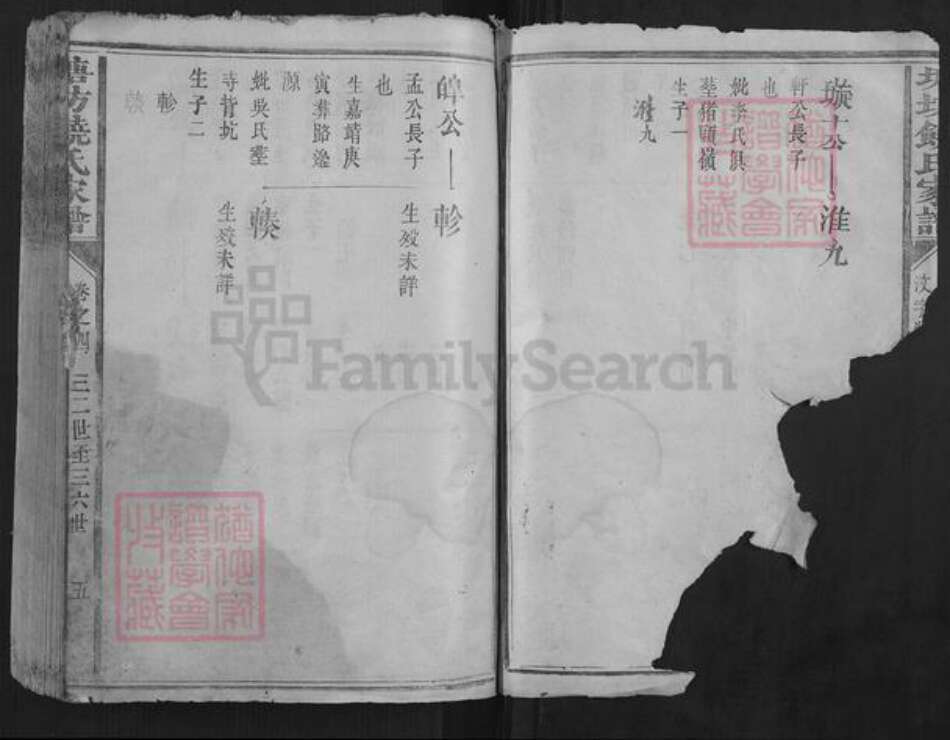 璇十公
淮九
軒公長子
也
妣李氏俱
塟猪頭嶺
生子一
淮九
皥公
軫
孟公長子
也
生嘉靖庚
寅
源
妣吳氏塟
寺背坑
生子二
軫
生歿未詳
生歿未詳
塘坊饒氏家譜
卷之四
三二世至三六世
五
FamilySearch
猶他家
譜學會
收藏
猶他家
譜學會
收藏